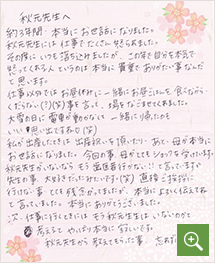 秋元先生へ
約3年間、本当にお世話になりました。
秋元先生には仕事でたくさん怒られました。
その度にいつも落ち込みましたが、この年で自分を本気で
怒ってくれる人というのは本当に貴重でありがたい事なんだ
と思います。
仕事以外ではお昼休みに一緒にお昼ごはんを食べながら
くだらない(?)(笑)事を言って、場をなごませてくれました。
大雪の日に電車が動かなくて一緒に帰ったのも
いい思い出ですね(笑)
私が出産したときは出産祝いを頂いたり、あと、母が本当に
お世話になりました。今回の事、母がとてもショックを受けています。
秋元先生がいないなら もう
先生の事、大好きだったみたいです。(笑) 直接ご挨拶に
行けない事、とても残念がってましたが、本当によろしく伝えてね
と言っていました。本当にありがとうございました。
次、仕事に行くときには もう秋元先生は いないのかと
考えると やっぱり本当に寂しいです。
秋元先生から 教えてもらった事、忘れず